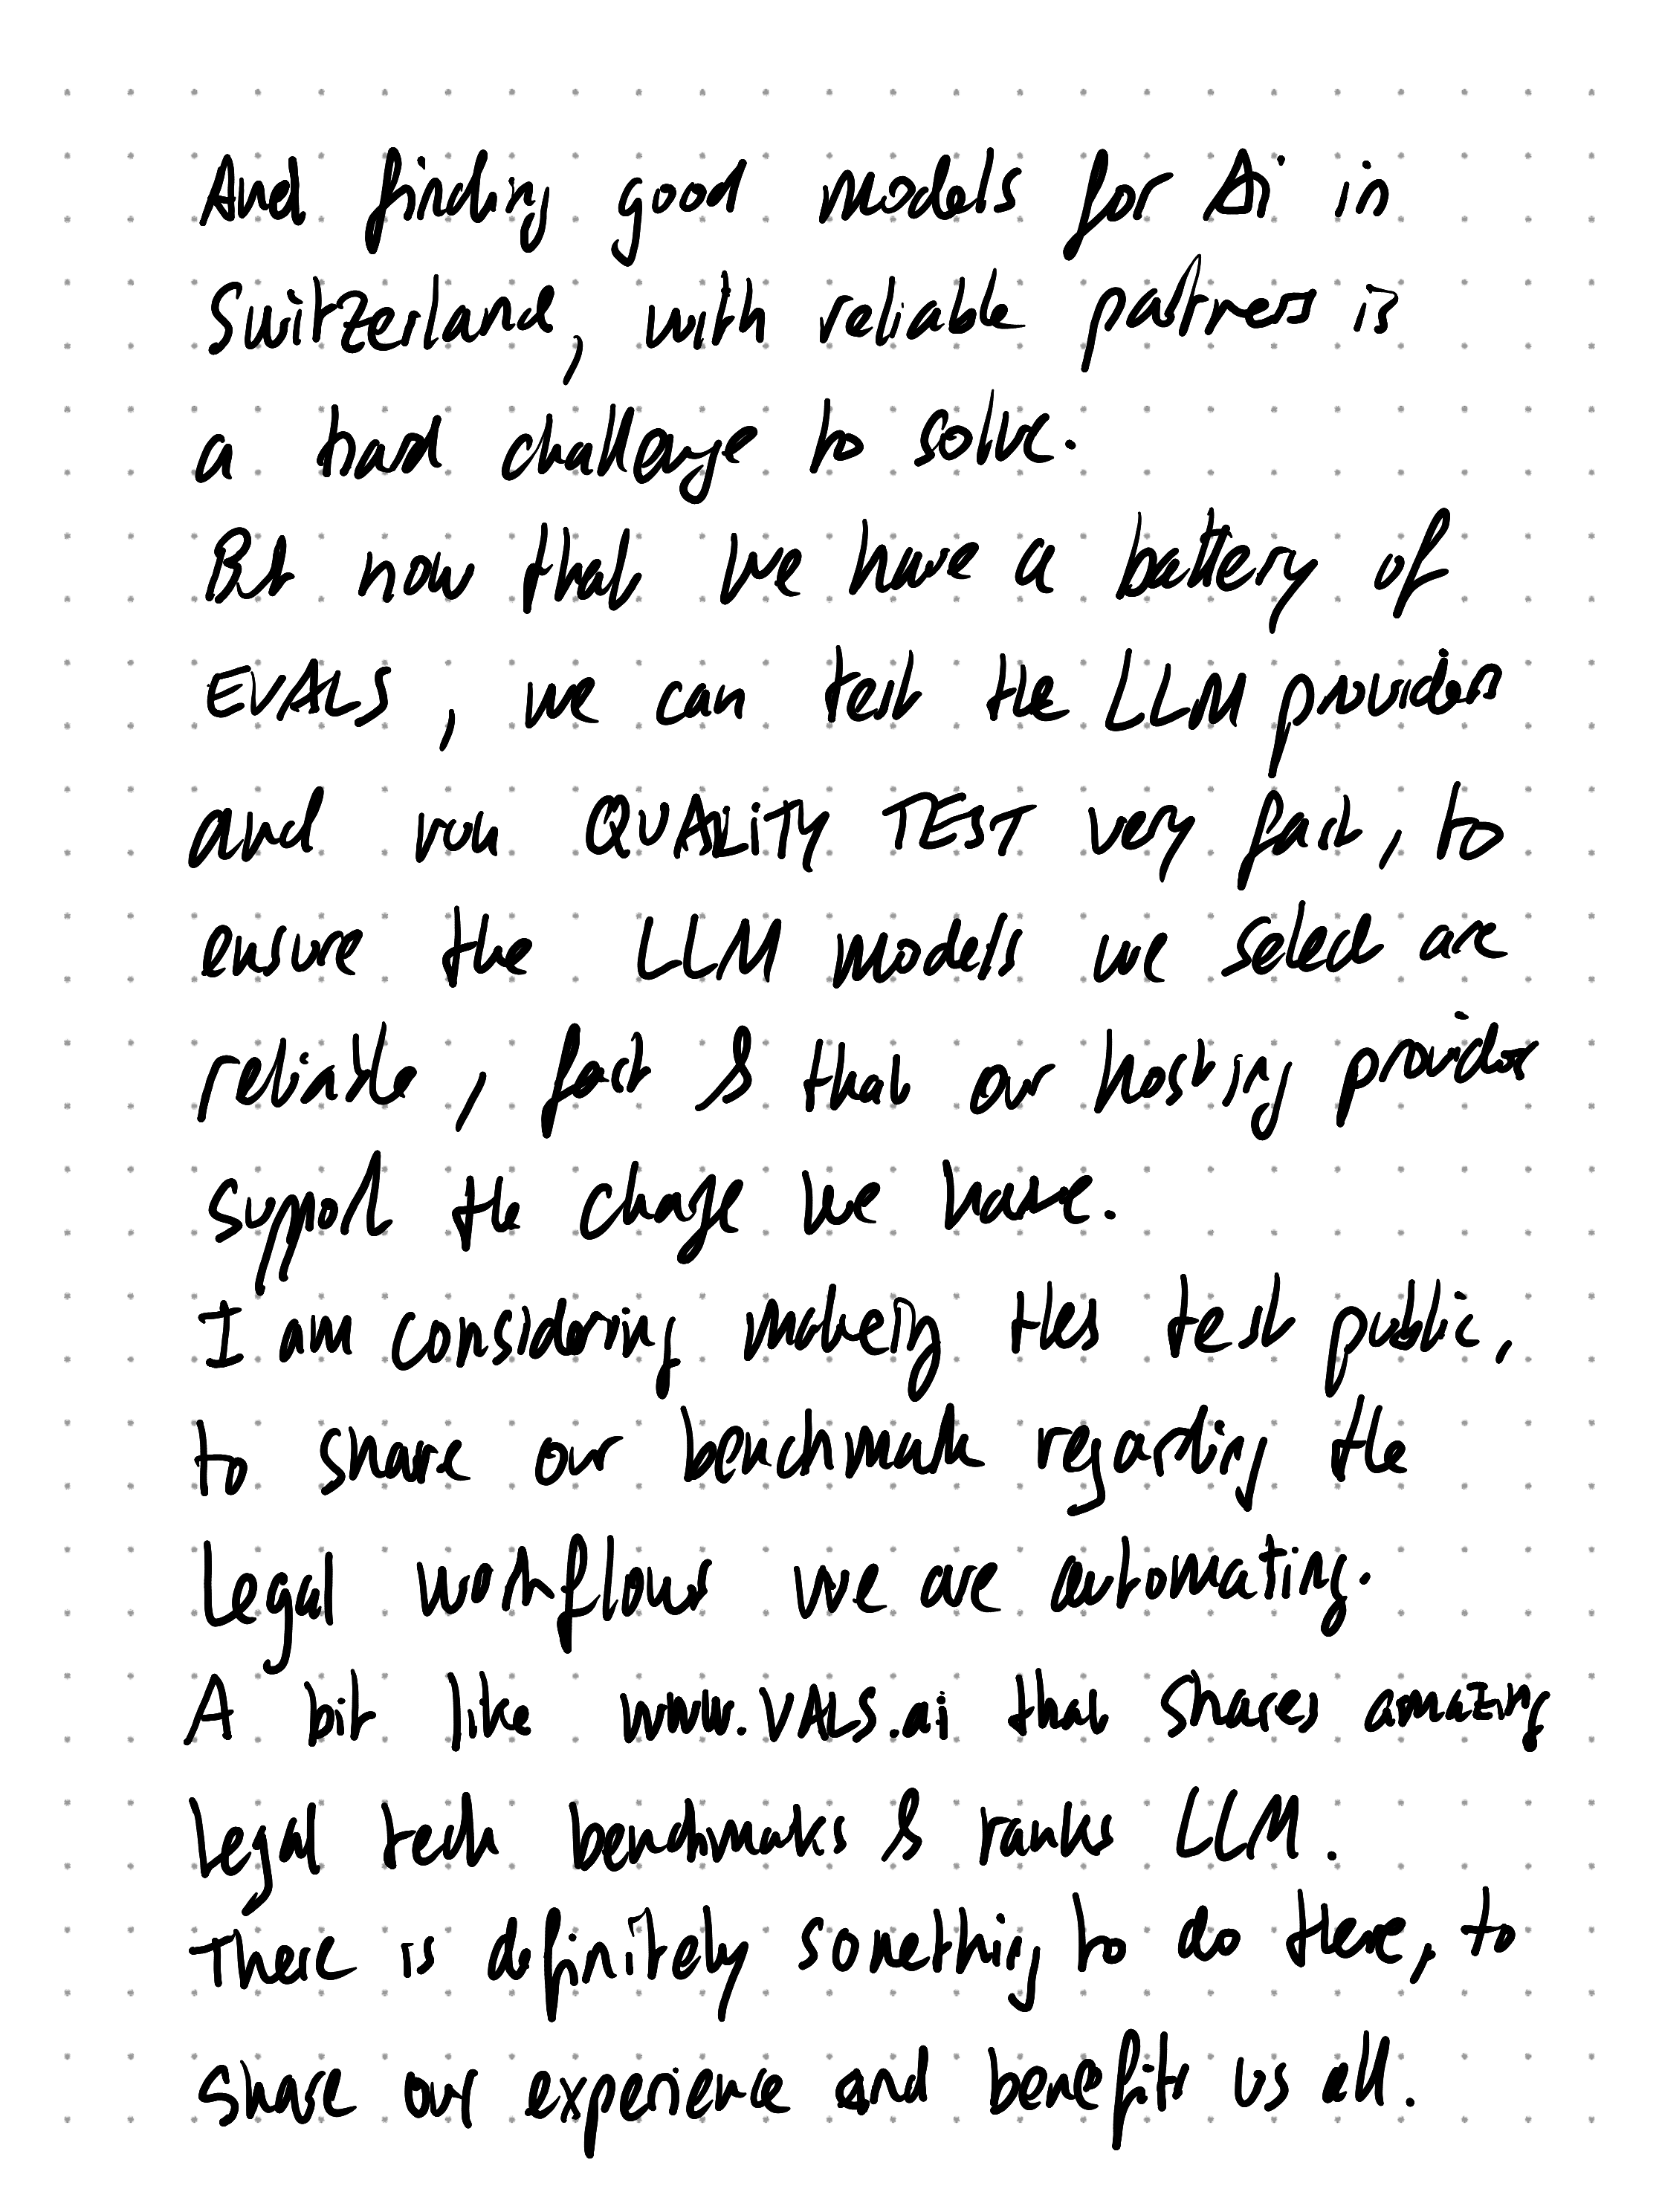 And finding good models for Ai in
Switzerland, with reliable partners is
a hard challenge to solve.
But now that we have a battery of
EVALS, we can test the LLM providers
and run QUALITY TEST very fast, to
ensure the LLM models we select are
reliable, fast & that our hosting provider
support the charge we have.
I am considering making this test public,
to share our benchmark regarding the
legal workflows we are automating.
A bit like www.VALS.ai that shares amazing
legal tech benchmarks & ranks LLM.
There is definitely something to do there, to
share our experience and benefits us all.